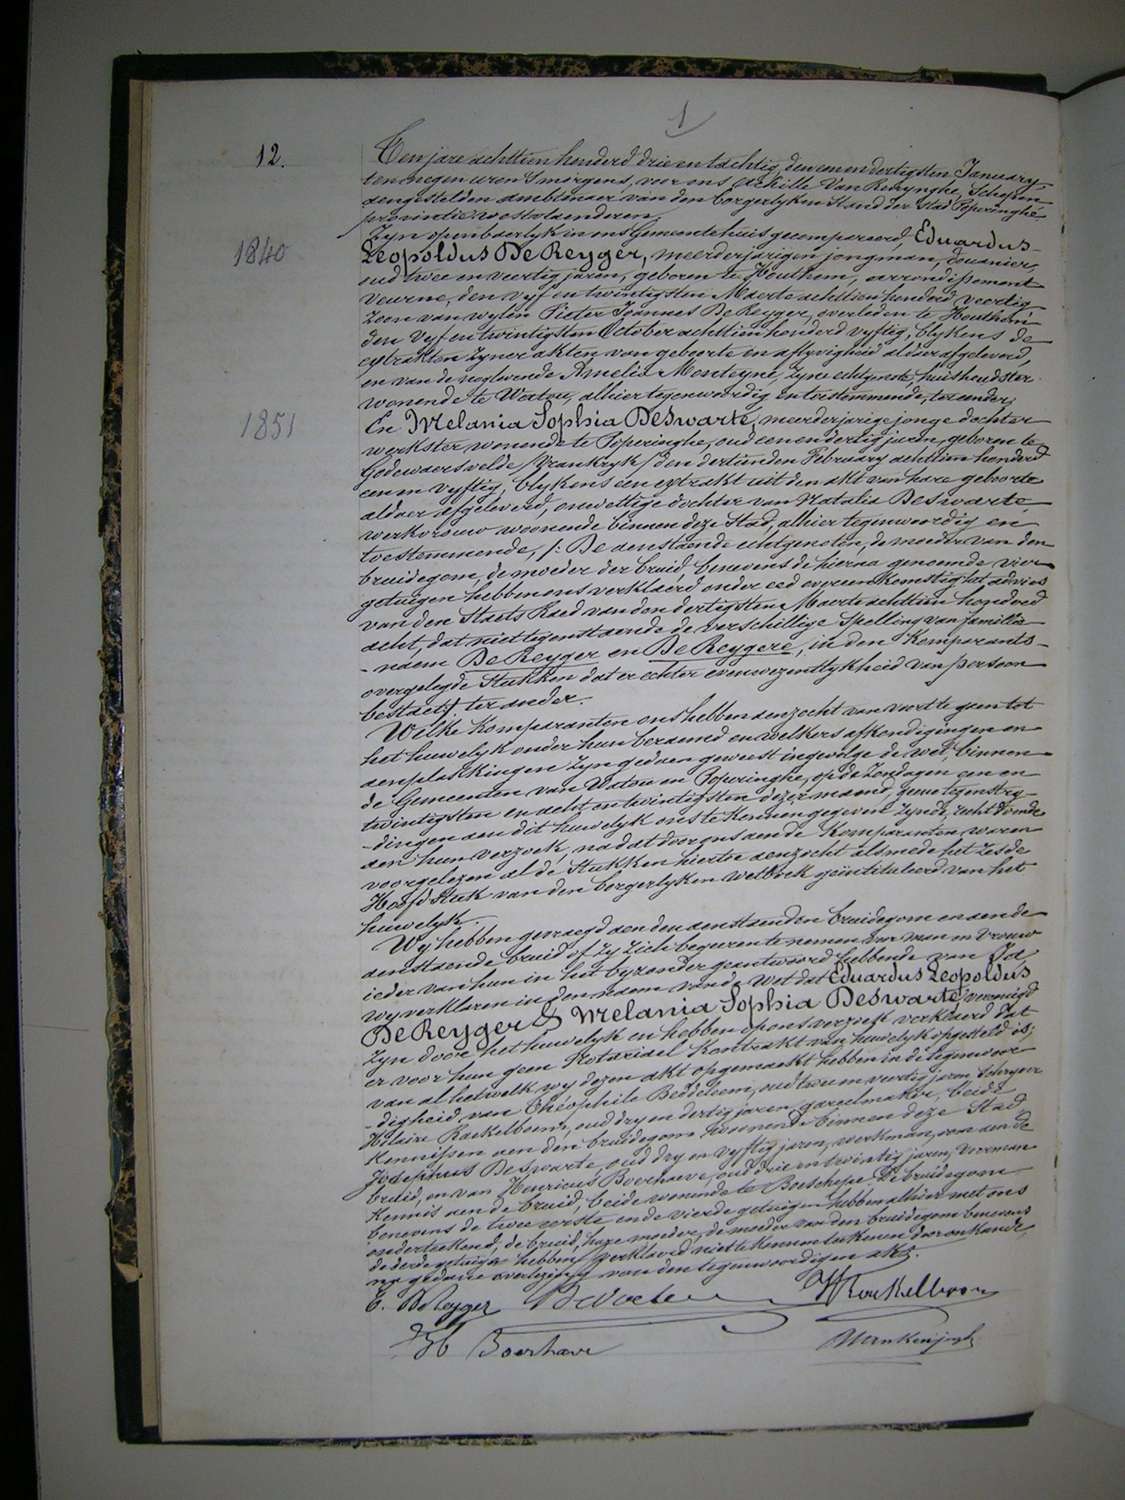 1
12.
Ten jare achttien honderd drie en tachtig, den een en dertigsten January,
ten negen uren 's morgens, voor ons Achille Van Renynghe, Schepen
aengestelden ambtenaer van den borgerlyken Stand der Stad Poperinghe
provintie westvlaenderen,
Zyn openbaerlyk in ons Gemeentehuis gecompareerd, Eduardus
1840
Leopoldus De Reyger, meerderjarigen jongman, douanier,
oud twee en veertig jaren, geboren te Houthem, arrondissement
veurne, den vyf en twintigsten Maerte achttien honderd veertig
Zoon van wylen Pieter Joannes De Reyger, overleden te Houthem
den vyf en twintigsten October achttien honderd vyftig, blykens de
extrakten zyner akten van geboorte en aflyvigheid aldaer afgeleverd,
en van de noglevende Amelia Monteyne, zyne echtgenote, huishoudster
wonende te Watou, alhier tegenwoordig en toestemmende, ter eender;
1851
En Melania Sophia Deswarte, meerderjarige jonge dochter
werkster wonende te Poperinghe, oud een en dertig jaren, geboren te
Godewaersvelde /Vrankryk/ den dertienden February achttien honderd
een en vyftig, blykens een extrakt uit den akt van hare geboorte
aldaer afgeleverd, onwettige dochter van Natalia Deswarte,
werkvrouw woonende binnen deze Stad, alhier tegenwoordig en
toestemmende, /: De aenstaende echtgenoten, de moeder van den
bruidegom, de moeder der bruid, benevens de hierna genoemde vier
getuigen hebben ons verklaerd onder eed overeenkomstig het advies
van den Staets Raed van den dertigsten Maerte achttien honderd
acht, dat niettegenstaende de verschillige spelling van familie
- naem De Reyger en De Reygere, in den komparants -
overgelegde Stukken dat er echter eenwezentlykheid van persoon
bestaet/ ter ander.
Welke Komparanten ons hebben aenzocht van voort te gaen tot
het huwelyk onder hun beraemd en welkers afkondigingen en
aenplakkingen zyn gedaen geweest ingevolge de wet, binnen
de Gemeenten van Watou en Poperinghe, op de Zondagen een en
twintigsten en acht en twintigsten dezer maend, geene tegenstry-
- dingen aen dit huwelyk ons te kennen gegeven zynde, recht doende
aen hun verzoek, nadat door ons aen de Komparanten waren
voorgelezen al de Stukken hiertoe aenzocht alsmede het Zesde
Hoofdstuk van den borgerlyken wetboek geïntituleerd van het
huwelyk.
Wy hebben gevraegd aen den aenstaenden bruidegom en aen de
aenstaende bruid of zy zich begeeren te nemen voor man en vrouw
ieder van hun in het byzonder geantwoord hebbende van Ja
wy verklaren in den naem van de wet dat Eduardus Leopoldus
De Reyger & Melania Sophia Deswarte, vereenigd
zyn door het huwelyk en hebben op ons verzoek verklaerd dat
er voor hun geen Notariael Kontrakt van huwelyk opgesteld is;
van al hetwelk wy dezen akt opgemaekt hebben in de tegenwoor-
- digheid van Théophile Beddeleem, oud twee en veertig jaren, schryver
Hilaire Raekelboom, oud dry en dertig jaren gareelmaker, beide
Kennissen aen den bruidegom woonende binnen deze Stad
Josephus Deswarte, oud dry en vyftig jaren, werkman, oom aen de
bruid, en van Henricus Boerhave, oud drie en twintig jaren, voerman
Kennis aen de bruid, beide wonende te Boeschepe. De bruidegom
benevens de twee eerste en de vierde getuigen hebben alhier met ons
onderteekend, de bruid, hare moeder, de moeder van den bruidegom benevens
de derde getuige hebben verklaerd niet te kunnen teekenen door onkunde,
na gedane overlezing van den tegenwoordigen akt.
E. De Reyger H Raekelboom
H Boerhave